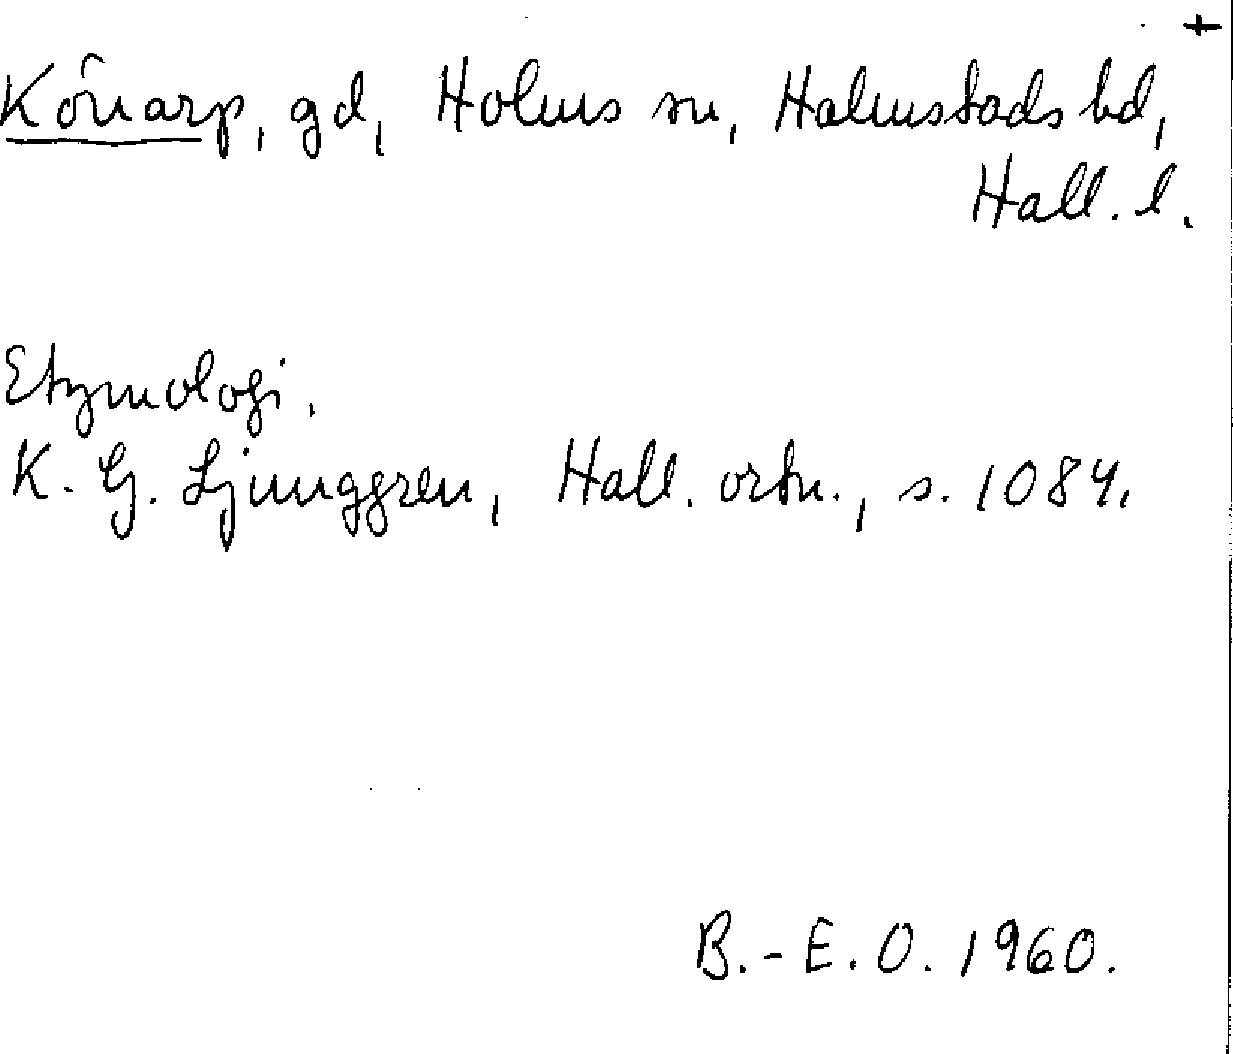 +
Könarp, gd, Holms sn, Halmstads hd,
Hall. l.
Etymologi.
K. G. Ljunggren, Hall. ortn., s. 1084.
B.-E. O. 1960.